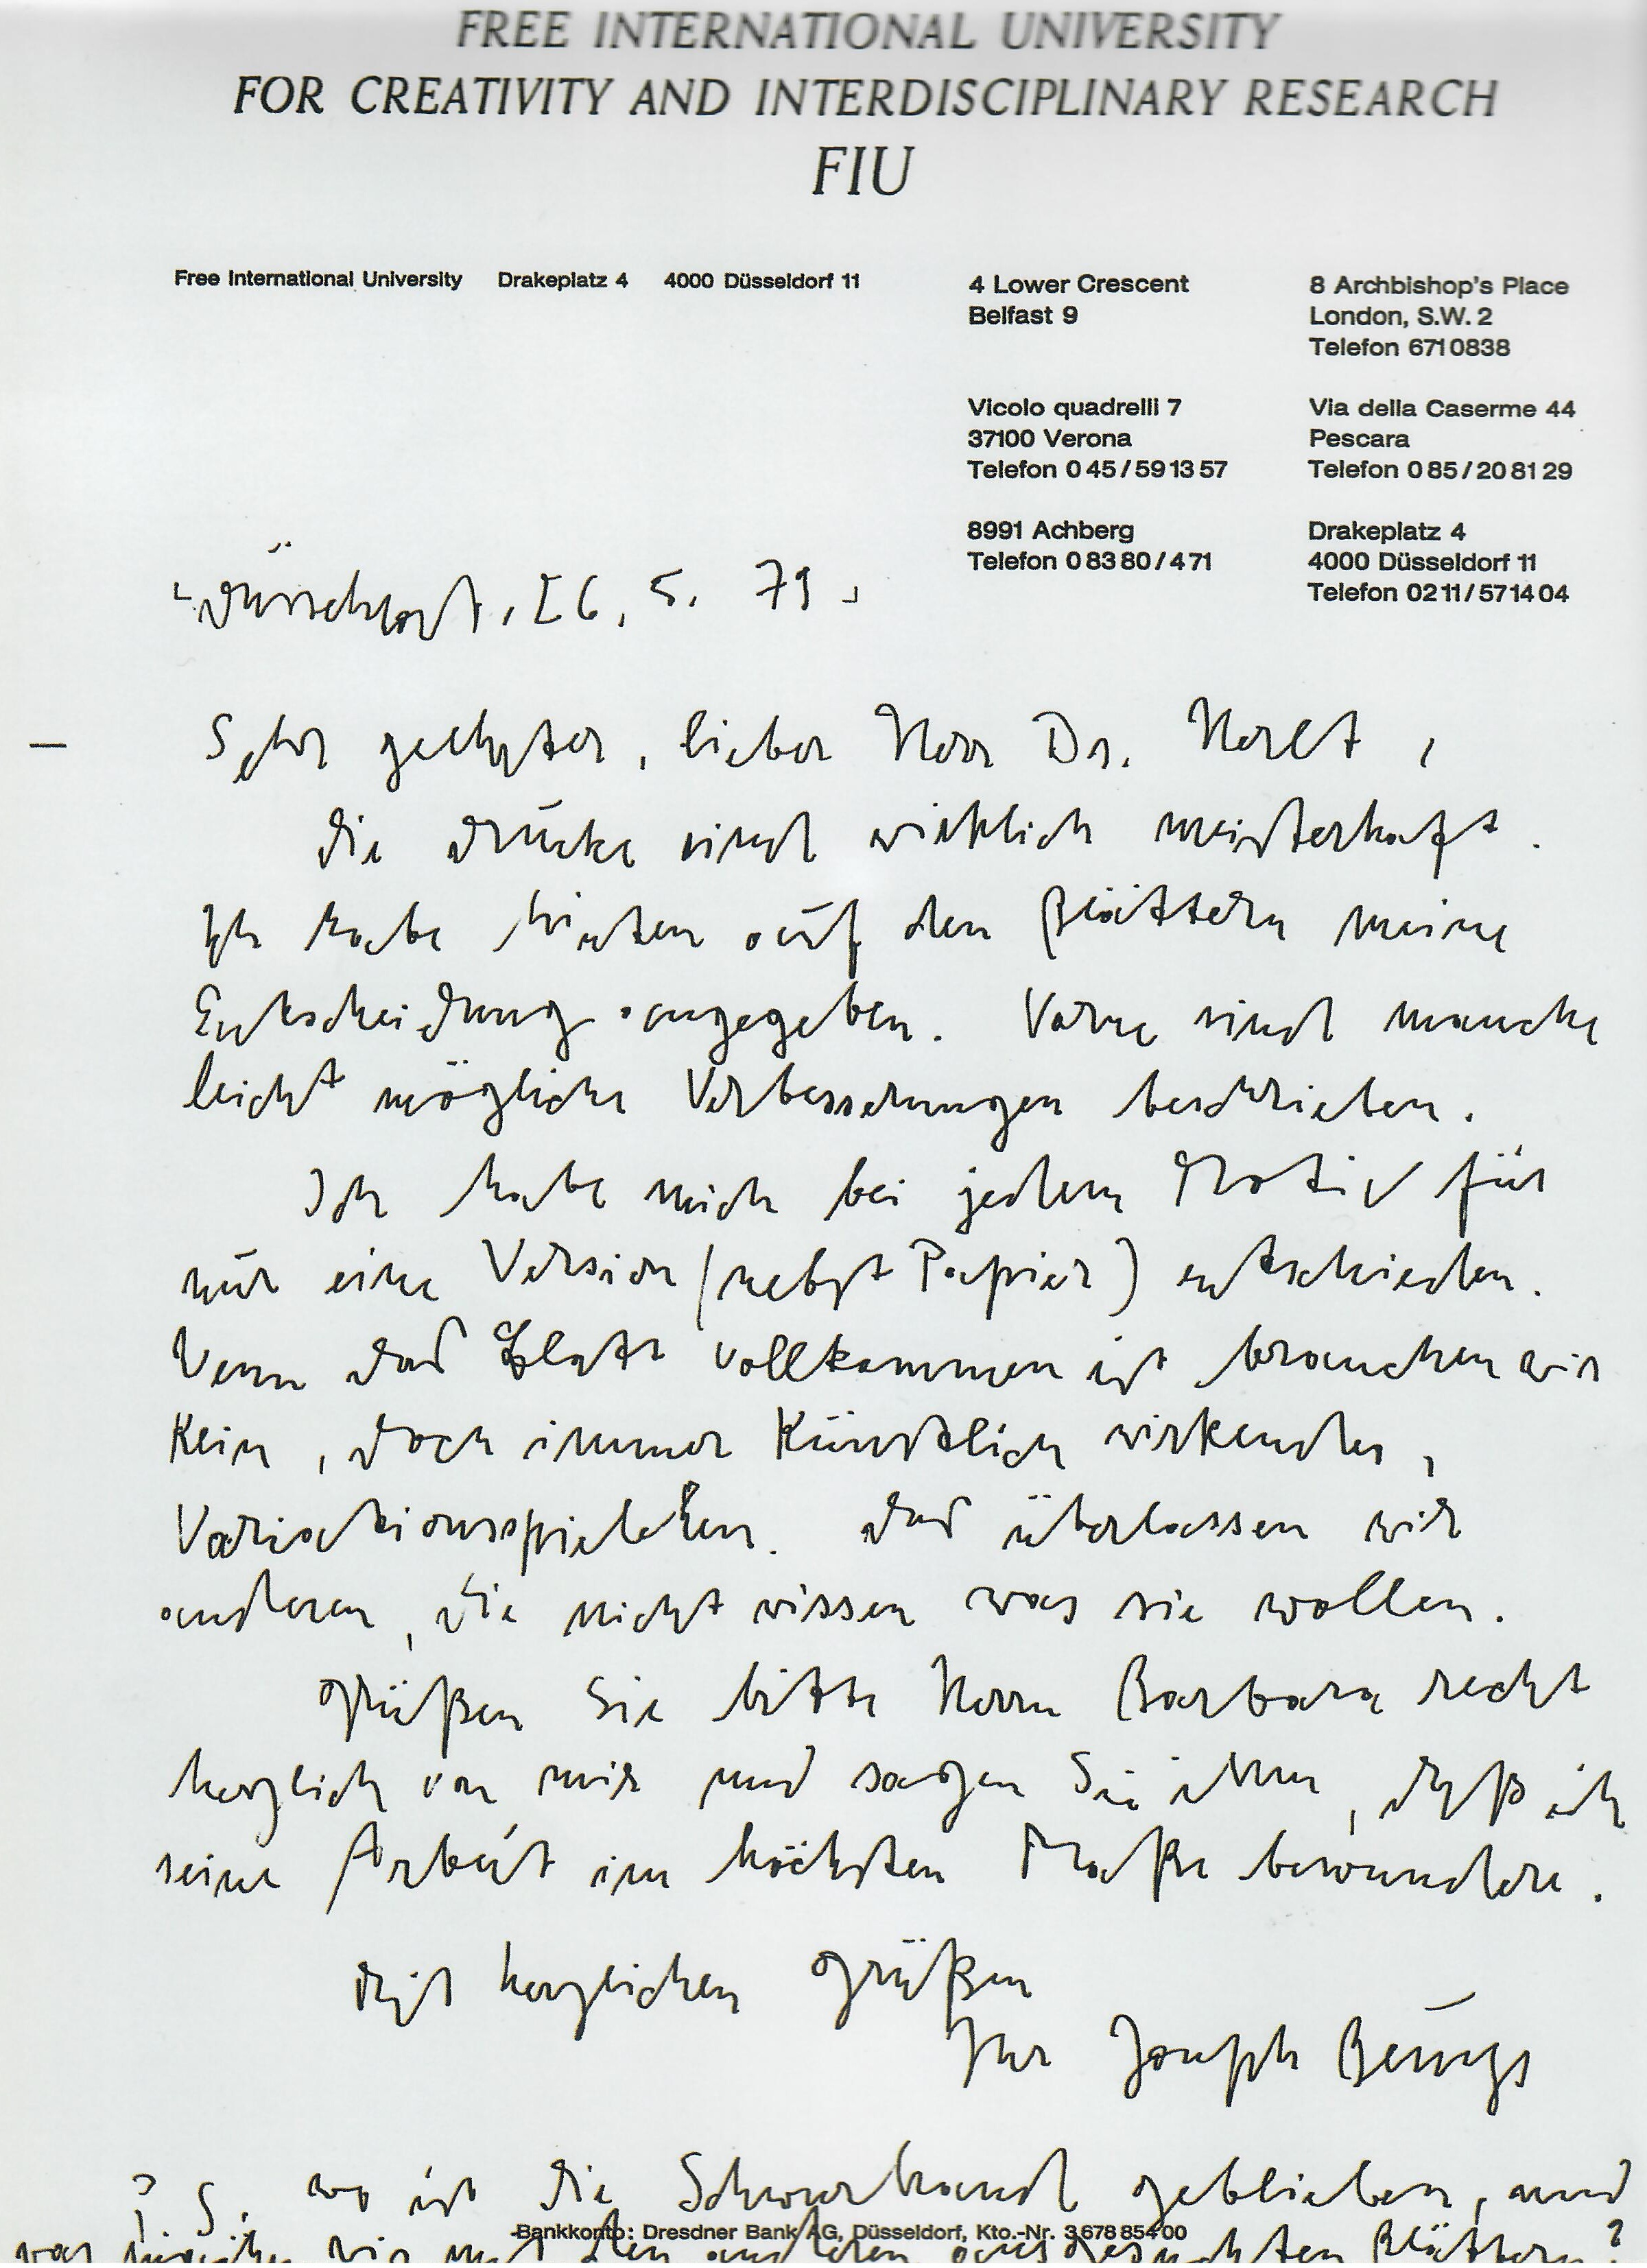 FREE INTERNATIONAL UNIVERSITY
FOR CREATIVITY AND INTERDISCIPLINARY RESEARCH
FIU
Free International University Drakeplatz 4 4000 Düsseldorf 11
4 Lower Crescent
Belfast 9
8 Archbishop's Place
London, S.W. 2
Telefon 6710838
Vicolo quadrelli 7
37100 Verona
Telefon 0 45 / 59 13 57
Via della Caserme 44
Pescara
Telefon 0 85 / 20 81 29
8991 Achberg
Telefon 0 83 80 / 4 71
Drakeplatz 4
4000 Düsseldorf 11
Telefon 02 11 / 57 14 04
Düsseldorf, 26. 5. 79
Sehr geehrter, lieber Herr Dr.
die Drucke sind wirklich meisterhaft.
Ich habe hinten auf den Blättern meine
Entscheidung angegeben. Vorne sind manche
leicht mögliche Verbesserungen beschrieben.
Ich habe mich bei jedem Motiv für
nur eine Version (nebst Papier) entschieden.
Wenn das Blatt vollkommen ist brauchen wir
kein, doch immer künstlich wirkendes,
Variationsspielchen. das überlassen wir
anderen, die nicht wissen was sie wollen.
Grüßen Sie bitte Herrn Barbara recht
herzlich von mir und sagen Sie ihm, daß ich
seine Arbeit im höchsten Maße bewundere.
Mit herzlichen Grüßen
Ihr Joseph Beuys
P. S. wo ist die Schwurhand geblieben, und
was machen wir mit den anderen ausgesuchten Blättern?
Bankkonto: Dresdner Bank AG, Düsseldorf, Kto.-Nr. 3 678 854 00